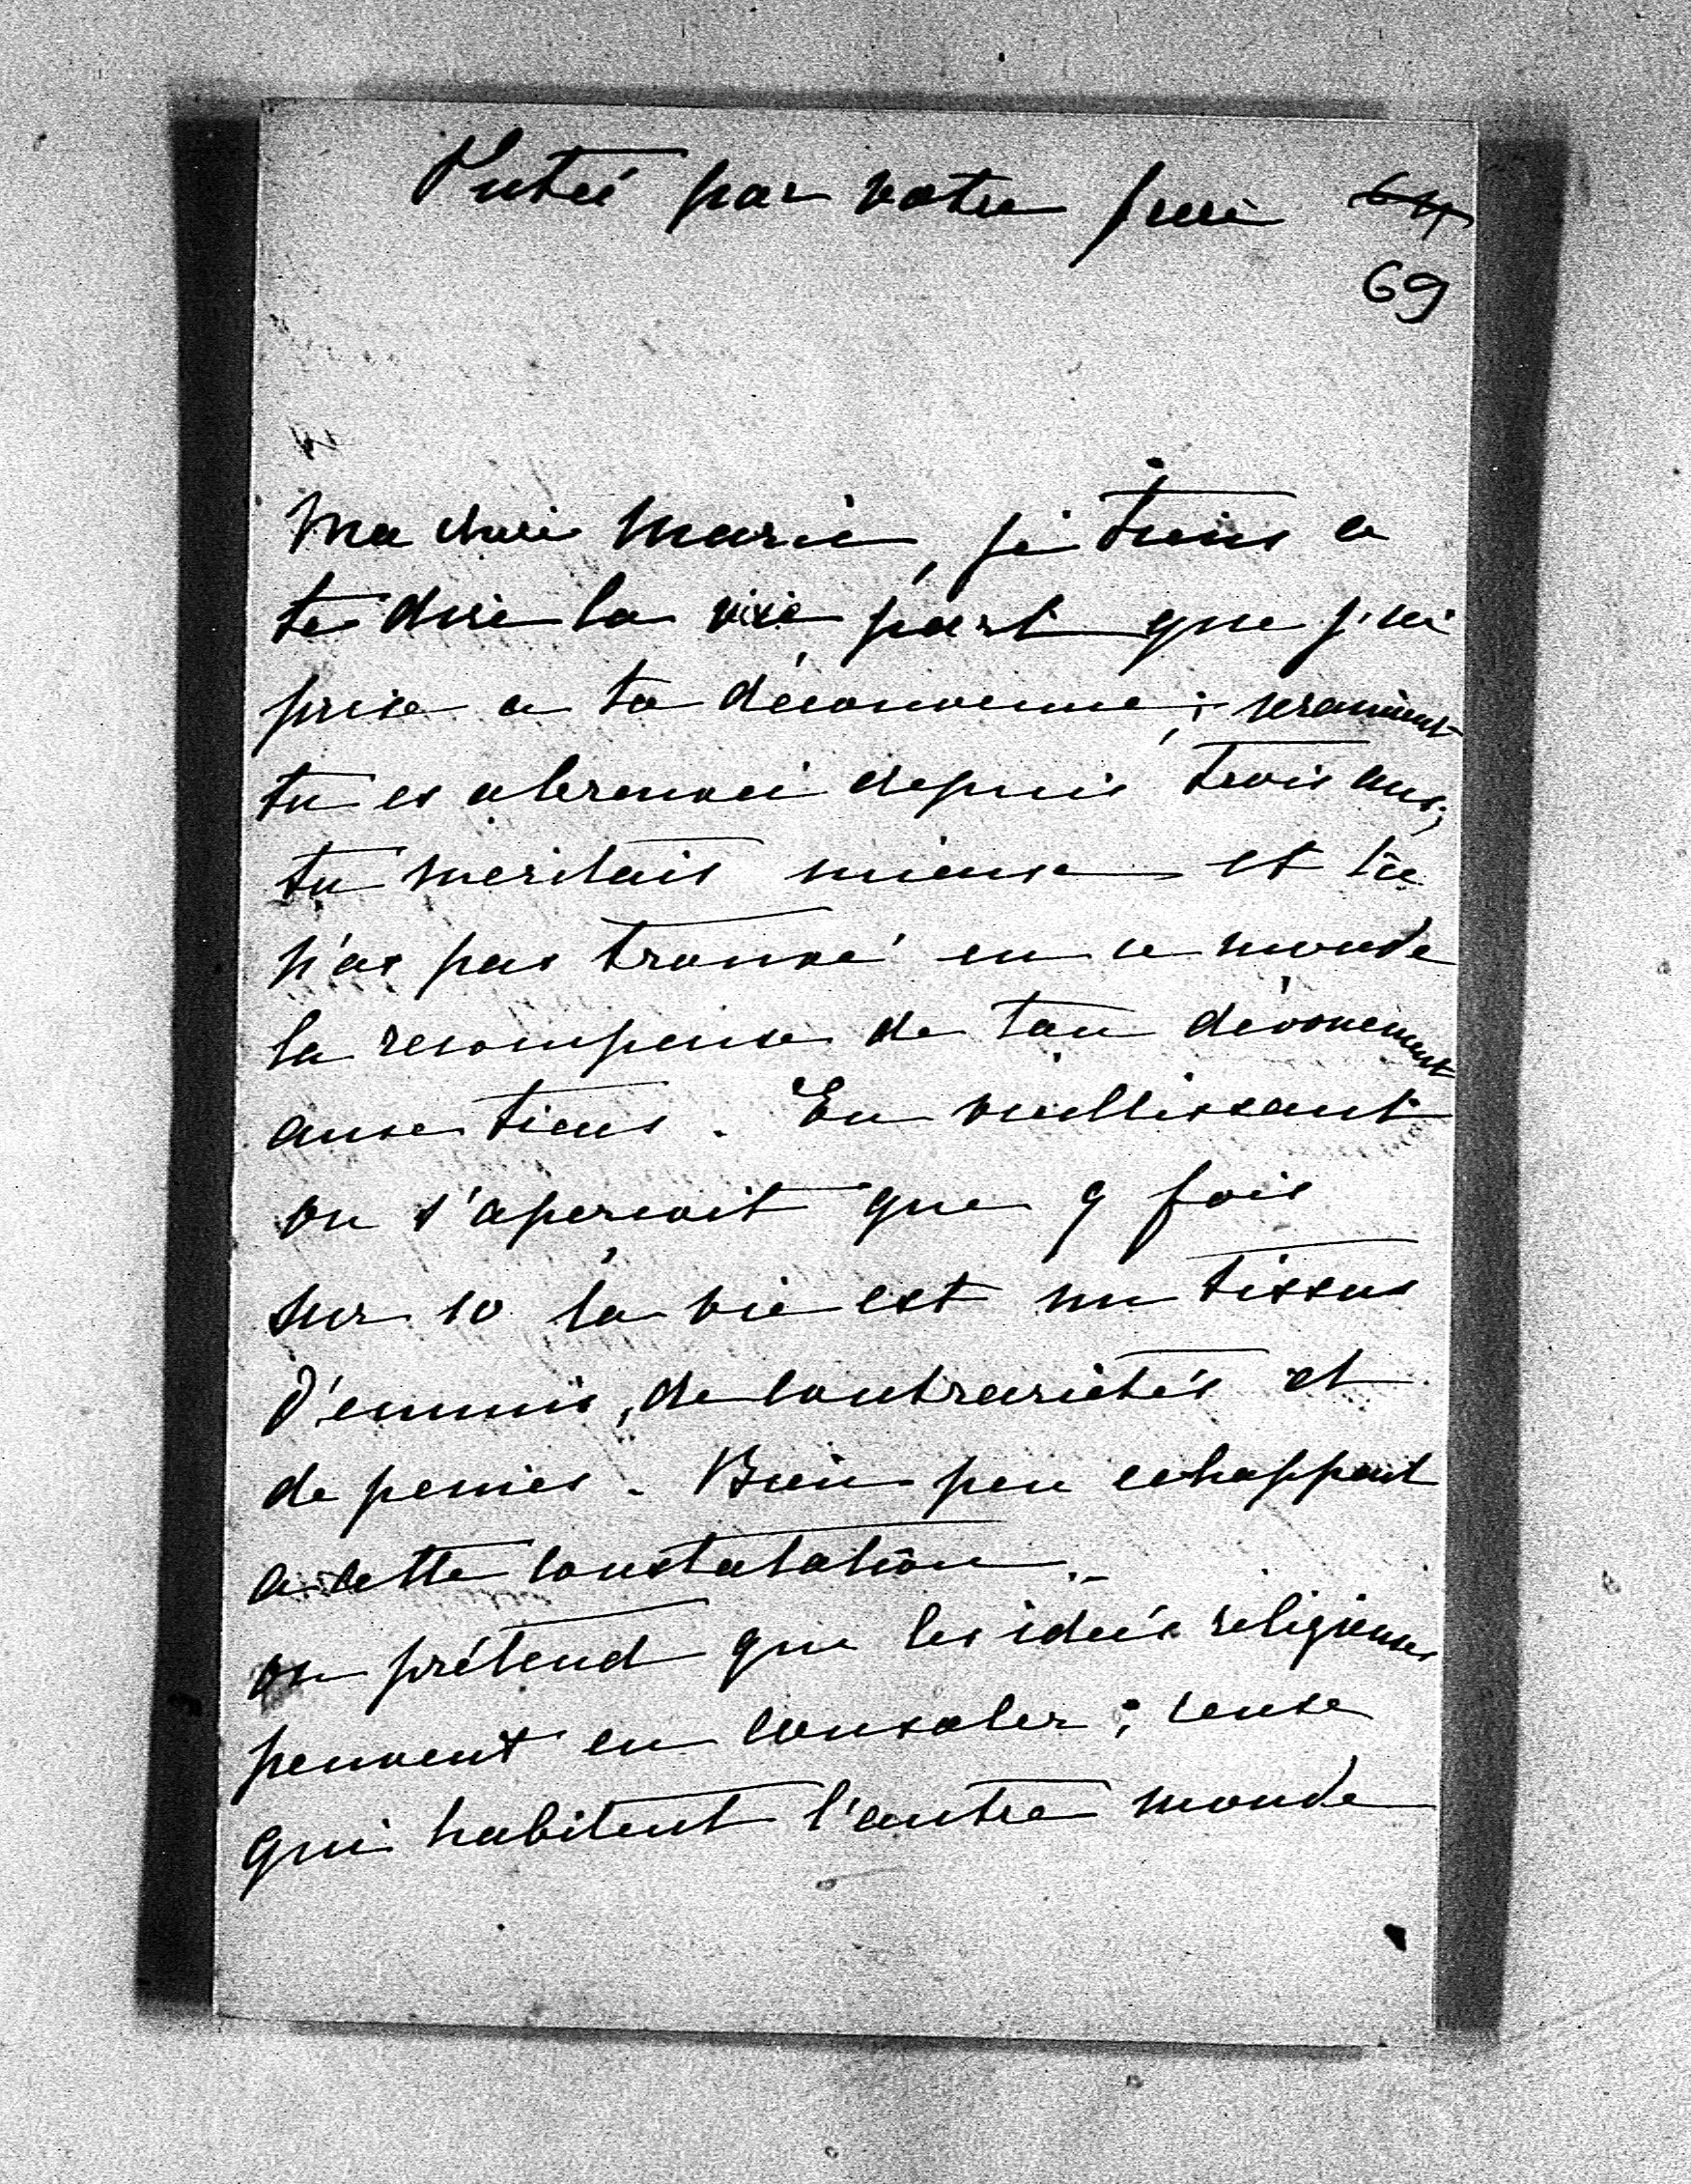 par votre frère 64
69
Ma chère Marie, je tiens a
te dire la vive part que j'ai
prise a ta déconvenue ; vraiment
tu es abreuvée depuis trois ans,
tu meritais mieux et tu
n'as pas trouvé en ce monde
la recompense de ton dévouement
aux tiens. En vieillissant
on s'apercoit que 9 fois
sur 10 la vie est un tissus
d'ennuis, de contrariétés et
de peines. Bien peu echappent
a cette constatation. -
on prétend que les idées religieuses
peuvent en consoler ; ceux
qui habitent l'autre monde